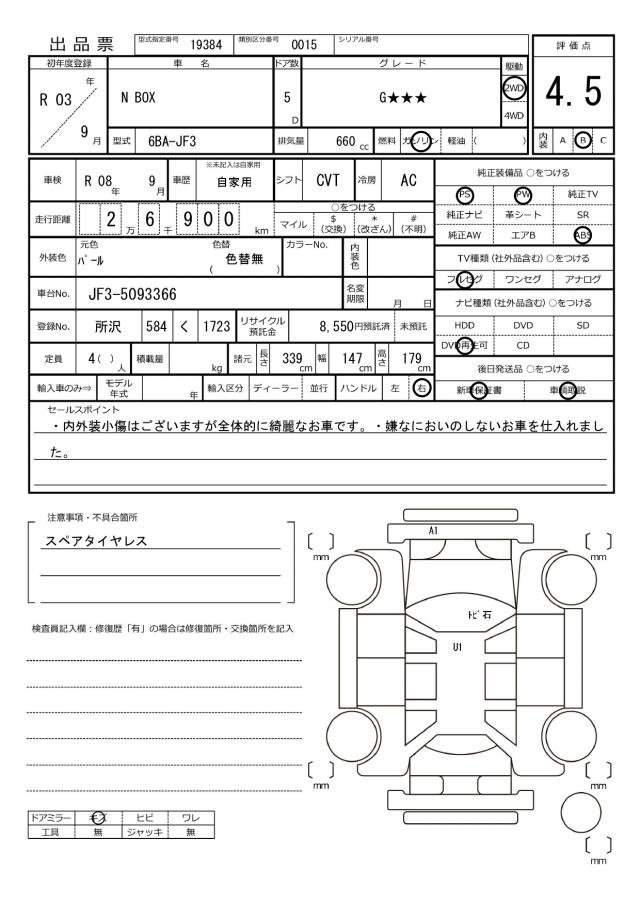 出品票
型式指定番号 19384 類別区分番号 0015 シリアル番号
初年度登録 車名 ドア数 グレード 駆動 評価点
R 03 年 9 月
N BOX 5 D G★★★ 2WD 4WD 4.5
型式 6BA-JF3 排気量 660 cc 燃料 ガソリン 軽油 ( ) 内装 A B C
車検 R 08 年 9 月 車歴 ※未記入は自家用 自家用 シフト CVT 冷房 AC
純正装備品 ○をつける
PS PW 純正TV
走行距離 2 万 6 千 9 0 0 km
○をつける
マイル $(交換) *(改ざん) #(不明)
純正ナビ 革シート SR
純正AW エアB ABS
外装色 元色 パール 色替 色替無 ( ) カラーNo. 内装色
TV種類(社外品含む)○をつける
フルセグ ワンセグ アナログ
車台No. JF3-5093366 名変期限 月 日
ナビ種類(社外品含む)○をつける
登録No. 所沢 584 く 1723 リサイクル預託金 8,550円預託済 未預託
HDD DVD SD
DVD再生可 CD
定員 4( )人 積載量 kg 諸元 長さ 339 cm 幅 147 cm 高さ 179 cm
後日発送品 ○をつける
輸入車のみ⇒ モデル年式 年 輸入区分 ディーラー 並行 ハンドル 左 右
新車保証書 車輌取説
セールスポイント
・内外装小傷はございますが全体的に綺麗なお車です。・嫌なにおいのしないお車を仕入れまし
た。
注意事項・不具合箇所
スペアタイヤレス
検査員記入欄：修復歴「有」の場合は修復箇所・交換箇所を記入
A1
mm mm
トビ石
U1
mm mm
mm
ドアミラー キズ ヒビ ワレ
工具 無 ジャッキ 無